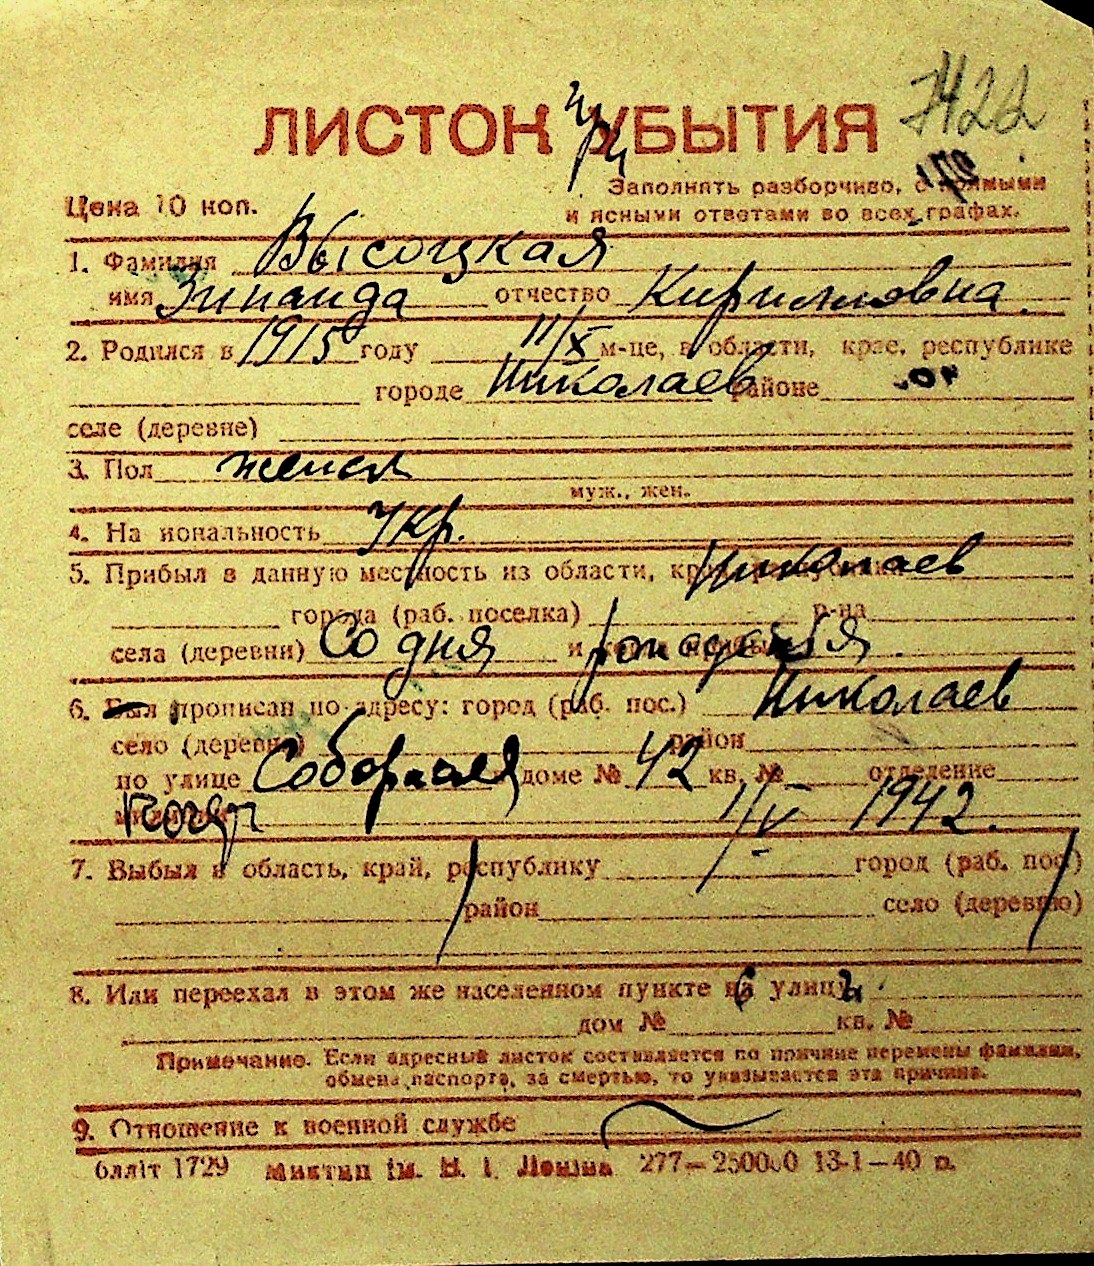 7422
ЛИСТОК УБЫТИЯ
Цена 10 коп.
Заполнять разборчиво, с прямыми
и ясными ответами во всех графах.
1. Фамилия Высоцкая
имя Зинаида отчество Кирилловна.
2. Родился в 1915 году 11/X м-це, в области, крае, республике
городе Николаев районе
селе (деревне)
3. Пол женск
муж., жен.
4. На иональность Укр.
5. Прибыл в данную местность из области, края, республики Николаев
города (раб. поселка) р-на
села (деревни) Со дня и когда прибыл рождения.
6. Был прописан по адресу: город (раб. пос.) Николаев
село (деревня) район
по улице Соборная доме № 42 кв. № отделение
милиции 1/IV 1942.
7. Выбыл в область, край, республику город (раб. пос.)
район село (деревню)
8. Или переехал в этом же населенном пункте на улицу
дом № кв. №
Примечание. Если адресный листок составляется по причине перемены фамилии,
обмена паспорта, за смертью, то указывается эта причина.
9. Отношение к военной службе
блліт 1729 Миктип ім. В. І. Леніна 277—250000 13-1—40 р.